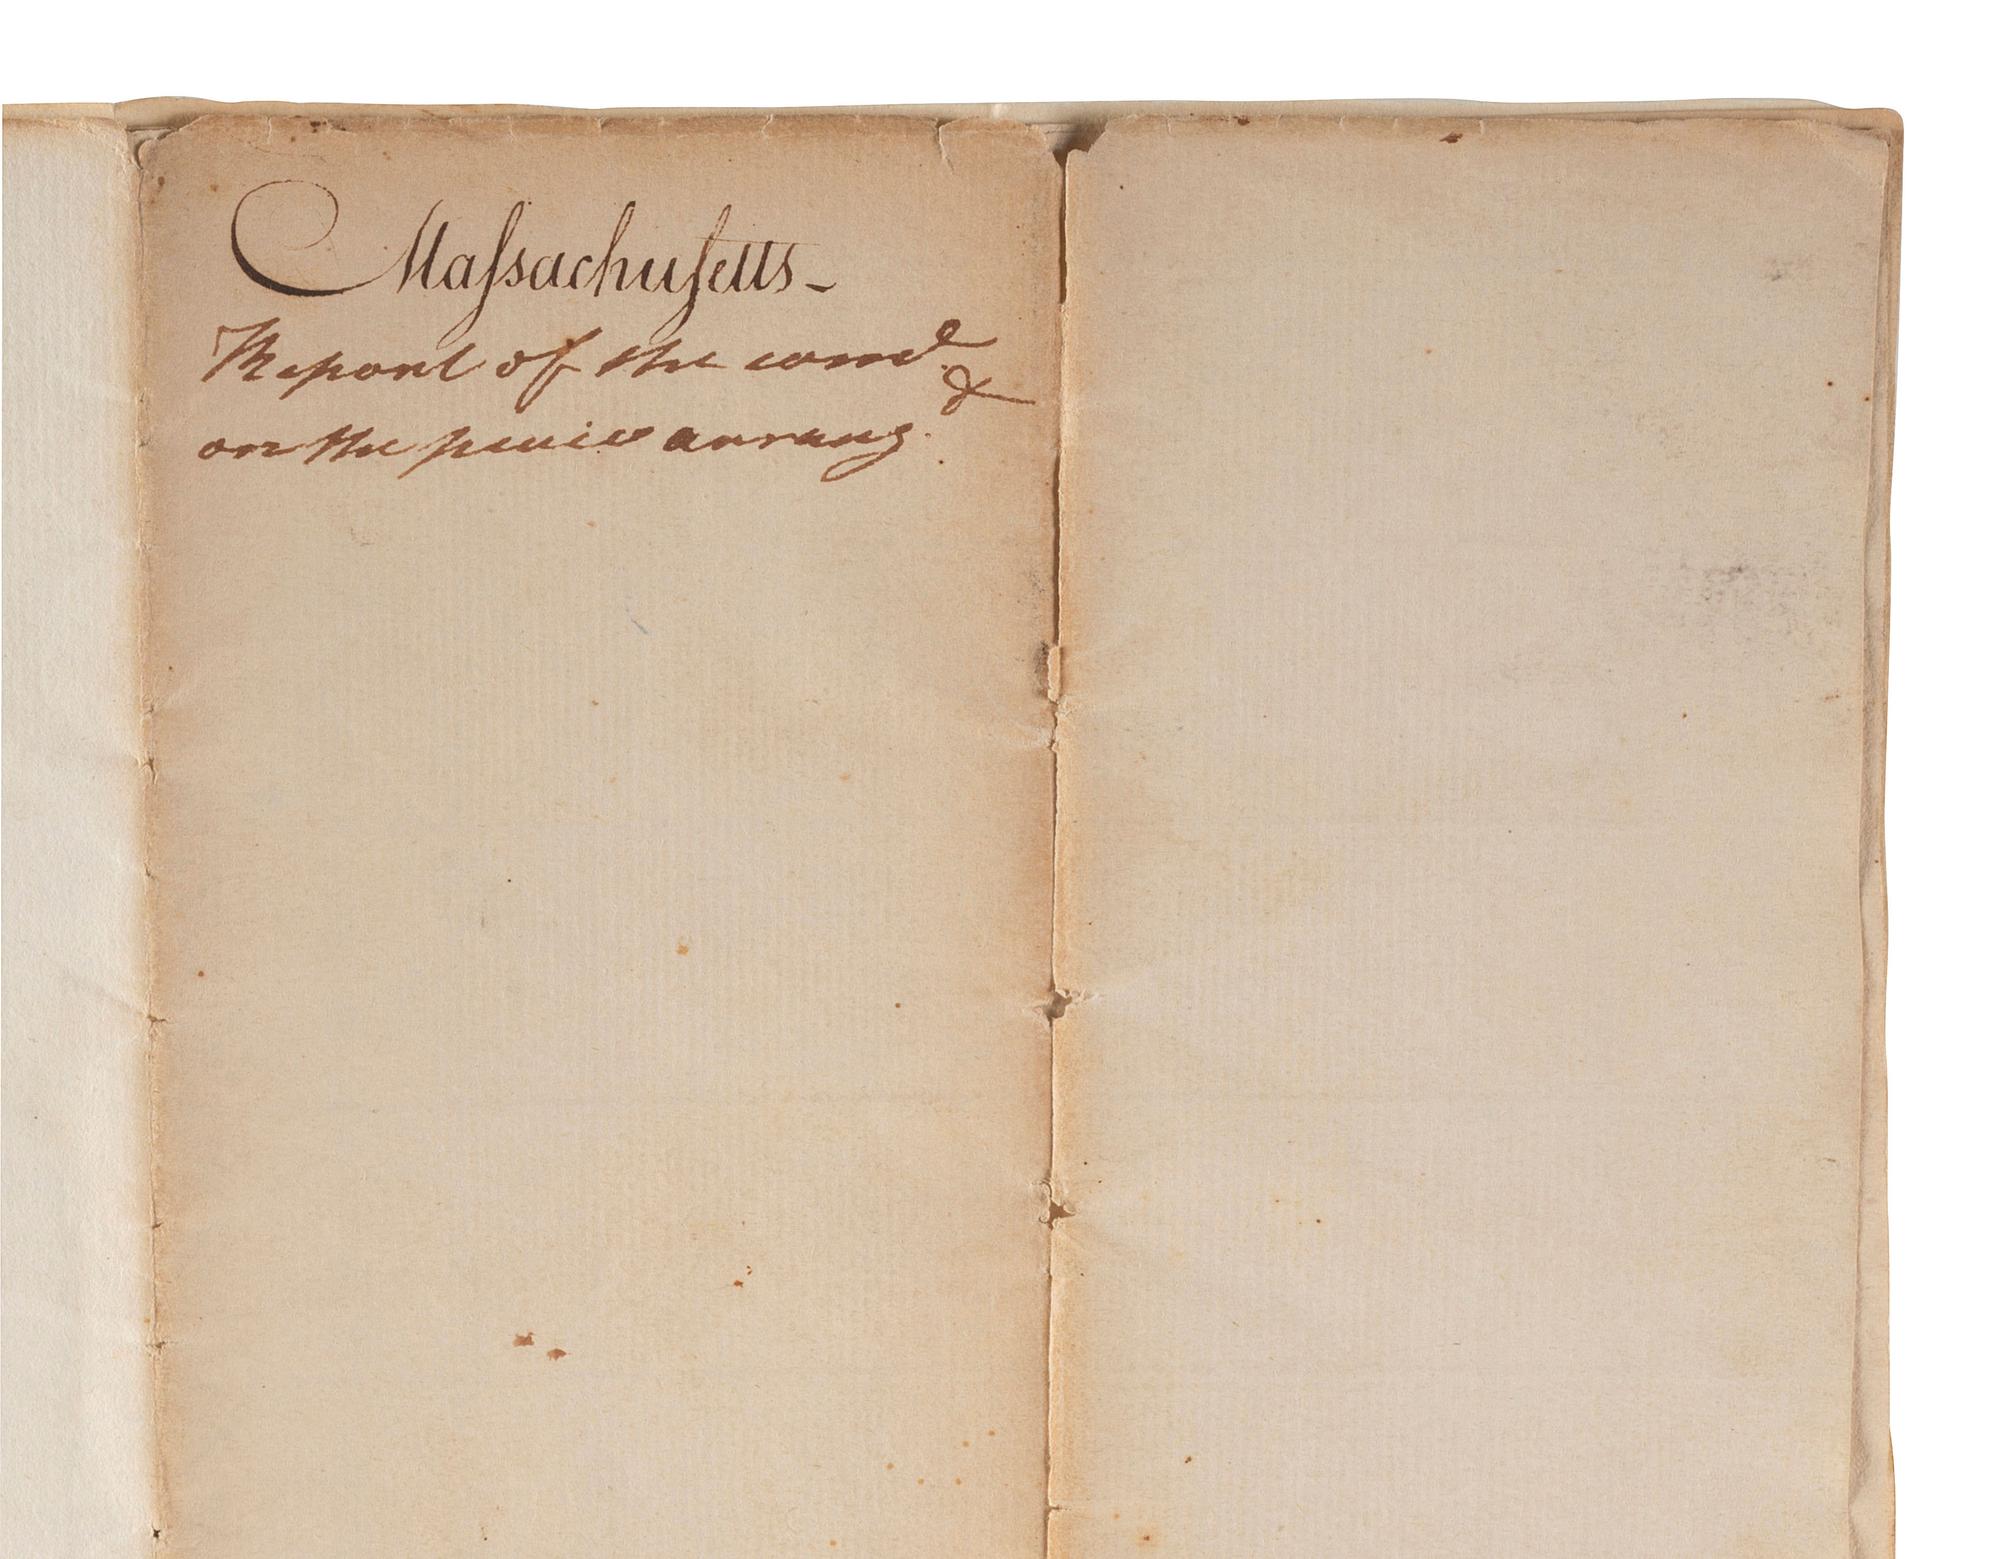 Maſsachuſetts-
Report of the com.e
on the arrang.